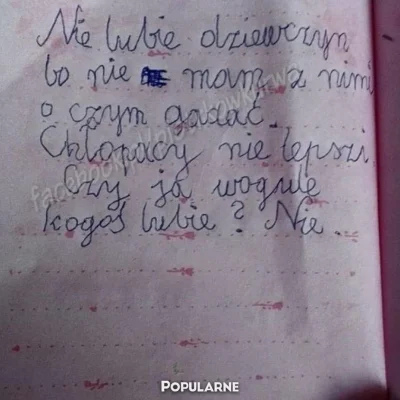 Nie lubie dziewczyn
bo nie mam z nimi
o czym gadać.
Chłopacy nie lepsi
Czy ja wogule
kogoś lubie? Nie.
POPULARNE